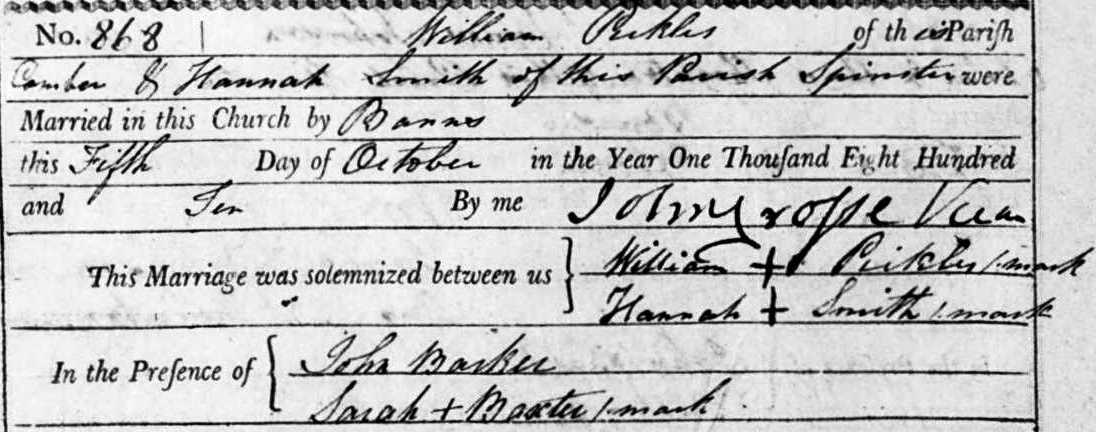 No. 868 William Pickles of this Pariſh
Comber & Hannah Smith of this Parish Spinster were
Married in this Church by Banns
this Fifth Day of October in the Year One Thouſand Eight Hundred
and Ten By me John Croſse Vicar
This Marriage was solemnized between us } William + Pickles / mark
Hannah + Smith / mark
In the Preſence of { John Barker
Sarah + Baxter / mark